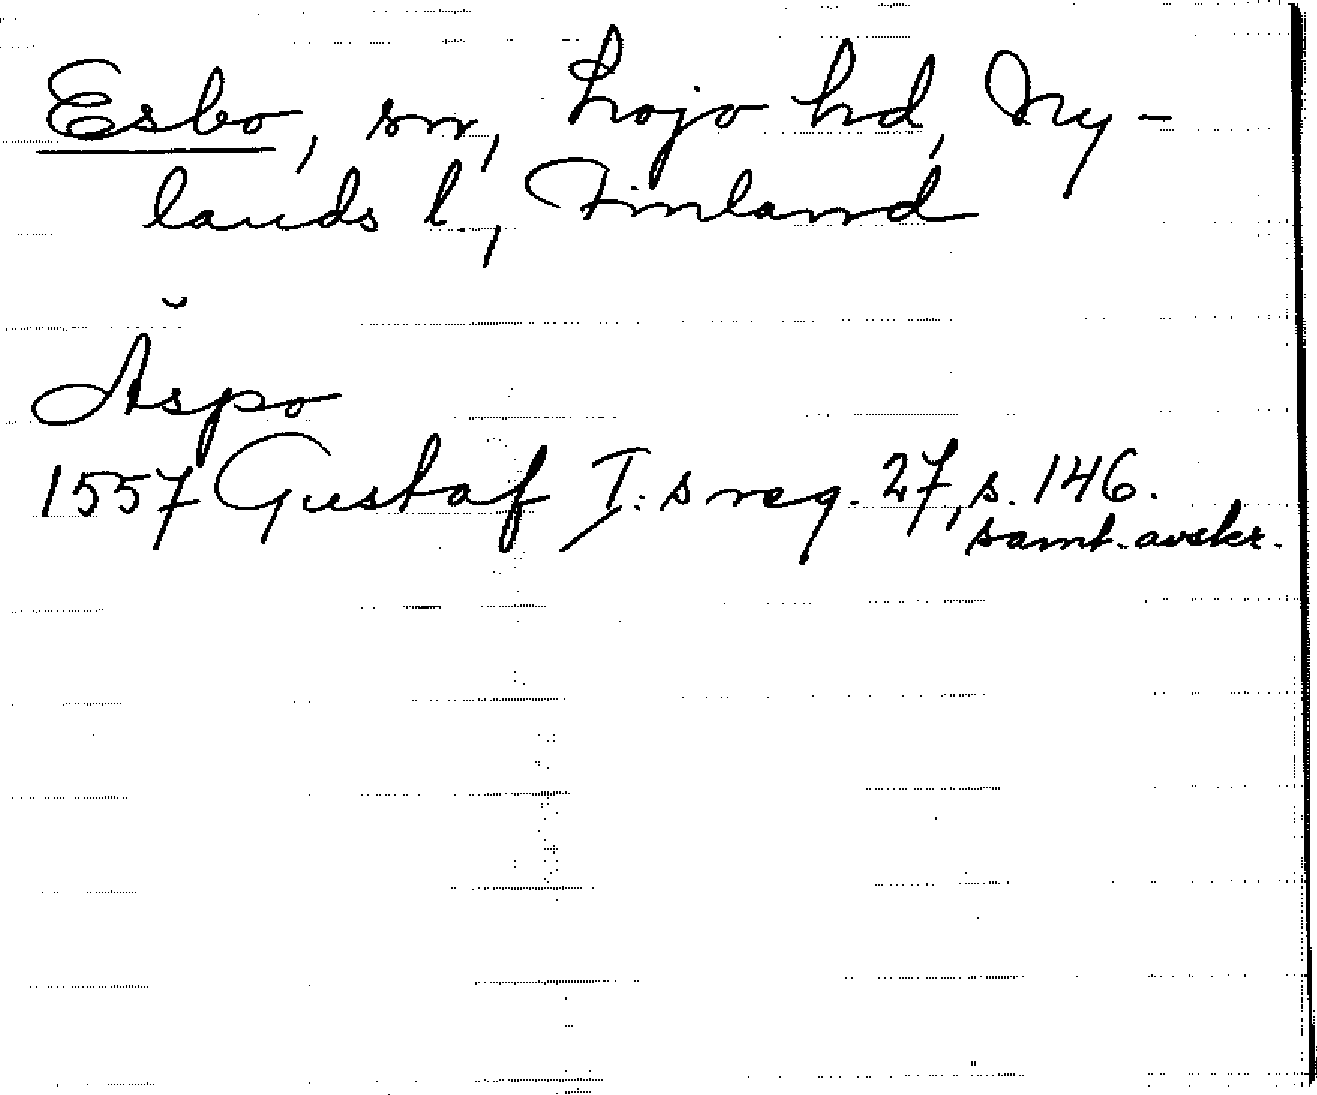 Esbo, sn, Lojo hd, Ny-
lands l., Finland
Ăspo
1557 Gustaf I:s reg. 27, s. 146.
samt. avskr.